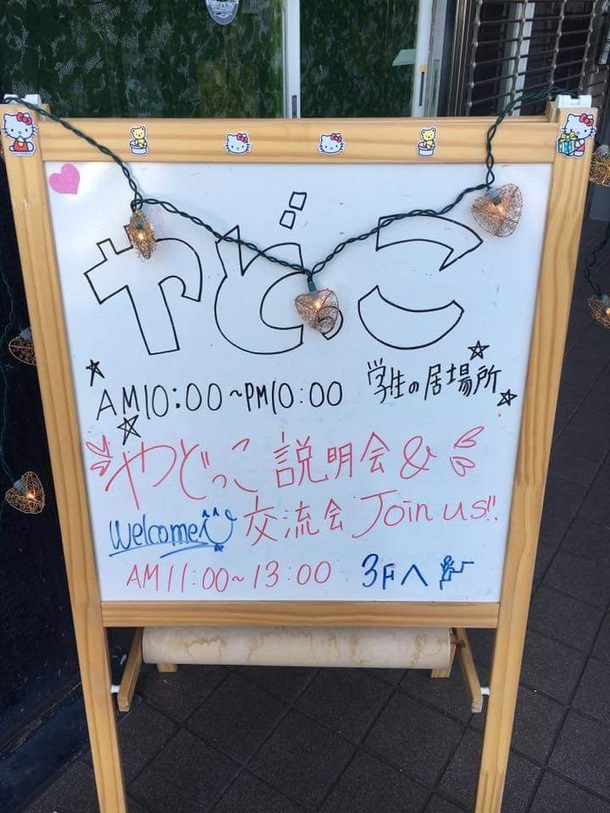 やどっこ
AM10:00～PM10:00 学生の居場所
やどっこ説明会&
Welcome 交流会 Join us!!
AM11:00～13:00 3Fへ